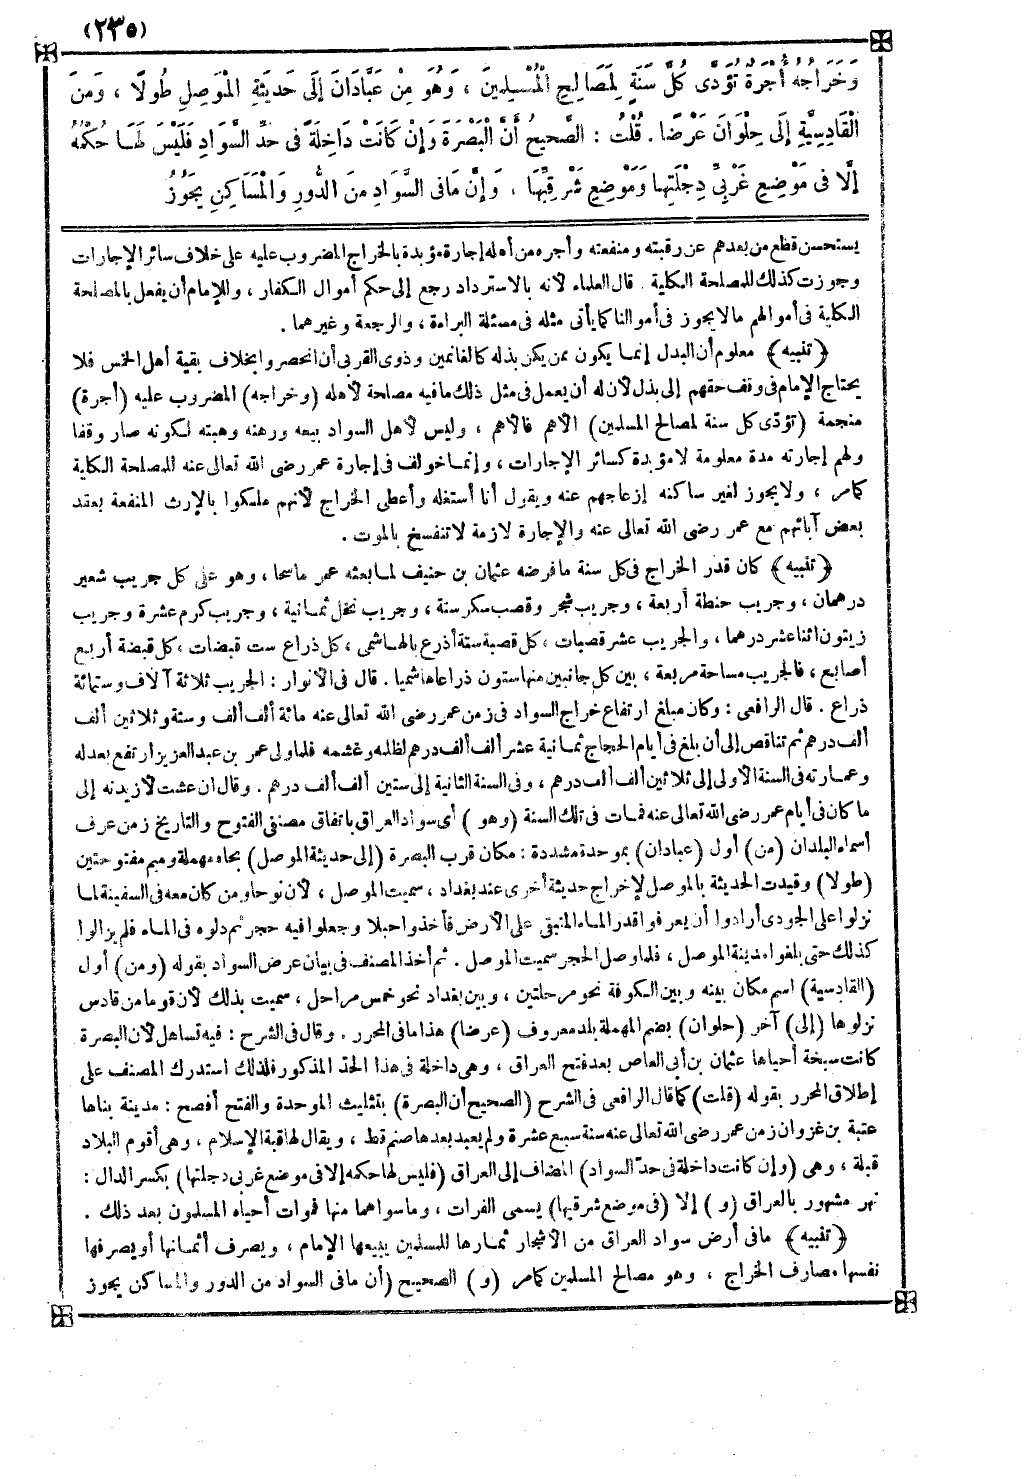 (٢٣٥)
وَخَرَاجُهُ أُجْرَةٌ تُؤَدَّى كُلَّ سَنَةٍ لِمَصَالِحِ الْمُسْلِمِينَ ، وَهُوَ مِنْ عَبَّادَانَ إِلَى حَدِيثَةِ الْمَوْصِلِ طُولًا ، وَمِنَ
الْقَادِسِيَّةِ إِلَى حِلْوَانَ عَرْضًا . قُلْتُ : الصَّحِيحُ أَنَّ الْبَصْرَةَ وَإِنْ كَانَتْ دَاخِلَةً فِى حَدِّ السَّوَادِ فَلَيْسَ لَهَا حُكْمُهُ
إِلَّا فِى مَوْضِعٍ غَرْبِىِّ دِجْلَتِهَا وَمَوْضِعٍ شَرْقِيِّهَا ، وَإِنَّ مَا فِى السَّوَادِ مِنَ الدُّورِ وَالْمَسَاكِنِ يَجُوزُ
يستحسن قطع من بعدهم عن رقبته ومنفعته وأجره من أهله إجارة مؤبدة بالخراج المضروب عليه على خلاف سائر الإجارات
وجوزت كذلك للمصلحة الكلية . قال العلماء لأنه بالاسترداد رجع إلى حكم أموال الكفار ، وللإمام أن يفعل بالمصلحة
الكلية فى أموالهم ما لا يجوز فى أموالنا كما يأتى مثله فى مسئلة البراءة ، والرجعة وغيرهما .
﴿تنبيه﴾ معلوم أن البدل إنما يكون ممن يمكن بذله كالغانمين وذوى القربى أن انحصروا بخلاف بقية أهل الخمس فلا
يحتاج الإمام فى وقف حقهم إلى بذل لأن له أن يعمل فى مثل ذلك ما فيه مصلحة لأهله (وخراجه) المضروب عليه (أجرة)
منجمة (تؤدى كل سنة لمصالح المسلمين) الأهم فالأهم ، وليس لأهل السواد بيعه ورهنه وهبته لكونه صار وقفا
ولهم إجارته مدة معلومة لا مؤبدة كسائر الإجارات ، وإنما خولف فى إجارة عمر رضى الله تعالى عنه للمصلحة الكلية
كما مر ، ولا يجوز لغير ساكنه إزعاجهم عنه ويقول أنا أستغله وأعطى الخراج لأنهم ملكوا بالإرث المنفعة بعقد
بعض آبائهم مع عمر رضى الله تعالى عنه والإجارة لازمة لا تنفسخ بالموت .
﴿تنبيه﴾ كان قدر الخراج فى كل سنة ما فرضه عثمان بن حنيف لما بعثه عمر ماسحا ، وهو على كل جريب شعير
درهمان ، وجريب حنطة أربعة ، وجريب شجر وقصب سكر ستة ، وجريب نخل ثمانية ، وجريب كرم عشرة وجريب
زيتون اثنا عشر درهما ، والجريب عشر قصبات ، كل قصبة ستة أذرع بالهاشمى ، كل ذراع ست قبضات ، كل قبضة أربع
أصابع ، فالجريب مساحة مربعة ، بين كل جانبين منها ستون ذراعا هاشميا . قال فى الأنوار : الجريب ثلاثة آلاف وستمائة
ذراع . قال الرافعى : وكان مبلغ ارتفاع خراج السواد فى زمن عمر رضى الله تعالى عنه مائة ألف ألف وستة وثلاثين ألف
ألف درهم ثم تناقص إلى أن بلغ فى أيام الحجاج ثمانية عشر ألف ألف درهم لظلمه وغشمه فلما ولى عمر بن عبد العزيز ارتفع بعدله
وعمارته فى السنة الأولى إلى ثلاثين ألف ألف درهم ، وفى السنة الثانية إلى ستين ألف ألف درهم . وقال إن عشت لأزيدنه إلى
ما كان فى أيام عمر رضى الله تعالى عنه فمات فى تلك السنة (وهو) أى سواد العراق باتفاق مصنفى الفتوح والتاريخ زمن عرف
أسماء البلدان (من) أول (عبادان) بموحدة مشددة : مكان قرب البصرة (إلى حديثة الموصل) بحاء مهملة وميم مفتوحتين
(طولا) وقيدت الحديثة بالموصل لإخراج حديثة أخرى عند بغداد ، سميت الموصل ، لأن نوحا ومن كان معه فى السفينة لما
نزلوا على الجودى أرادوا أن يعرفوا قدر الماء المتبقى على الأرض فأخذوا حبلا وجعلوا فيه حجر ثم دلوه فى الماء فلم يزالوا
كذلك حتى بلغوا مدينة الموصل ، فلما وصل الحجر سميت الموصل . ثم أخذ المصنف فى بيان عرض السواد بقوله (ومن) أول
(القادسية) اسم مكان بينه وبين الكوفة نحو مرحلتين ، وبين بغداد نحو خمس مراحل ، سميت بذلك لأن قوما من قادس
نزلوها (إلى) آخر (حلوان) بضم المهملة بلد معروف (عرضا) هذا ما فى المحرر . وقال فى الشرح : فيه تساهل لأن البصرة
كانت سبخة أحياها عثمان بن أبى العاص بعد فتح العراق ، وهى داخلة فى هذا الحد المذكور فلذلك استدرك المصنف على
إطلاق المحرر بقوله (قلت) كما قال الرافعى فى الشرح (الصحيح أن البصرة) بتثليث الموحدة والفتح أفصح : مدينة بناها
عتبة بن غزوان زمن عمر رضى الله تعالى عنه سنة سبع عشرة ولم يعبد بعدها صنم قط ، ويقال لها قبة الإسلام ، وهى أقوم البلاد
قبلة ، وهى (وإن كانت داخلة فى حد السواد) المضاف إلى العراق (فليس لها حكمه إلا فى موضع غربى دجلتها) بكسر الدال :
نهر مشهور بالعراق (و) إلا (فى موضع شرقيها) يسمى الفرات ، وما سواهما منها فموات أحياه المسلمون بعد ذلك .
﴿تنبيه﴾ ما فى أرض سواد العراق من الأشجار ثمارها للمسلمين يبيعها الإمام ، ويصرف أثمانها أو يصرفها
نفسها مصارف الخراج ، وهو مصالح المسلمين كما مر (و) الصحيح (أن ما فى السواد من الدور والمساكن يجوز